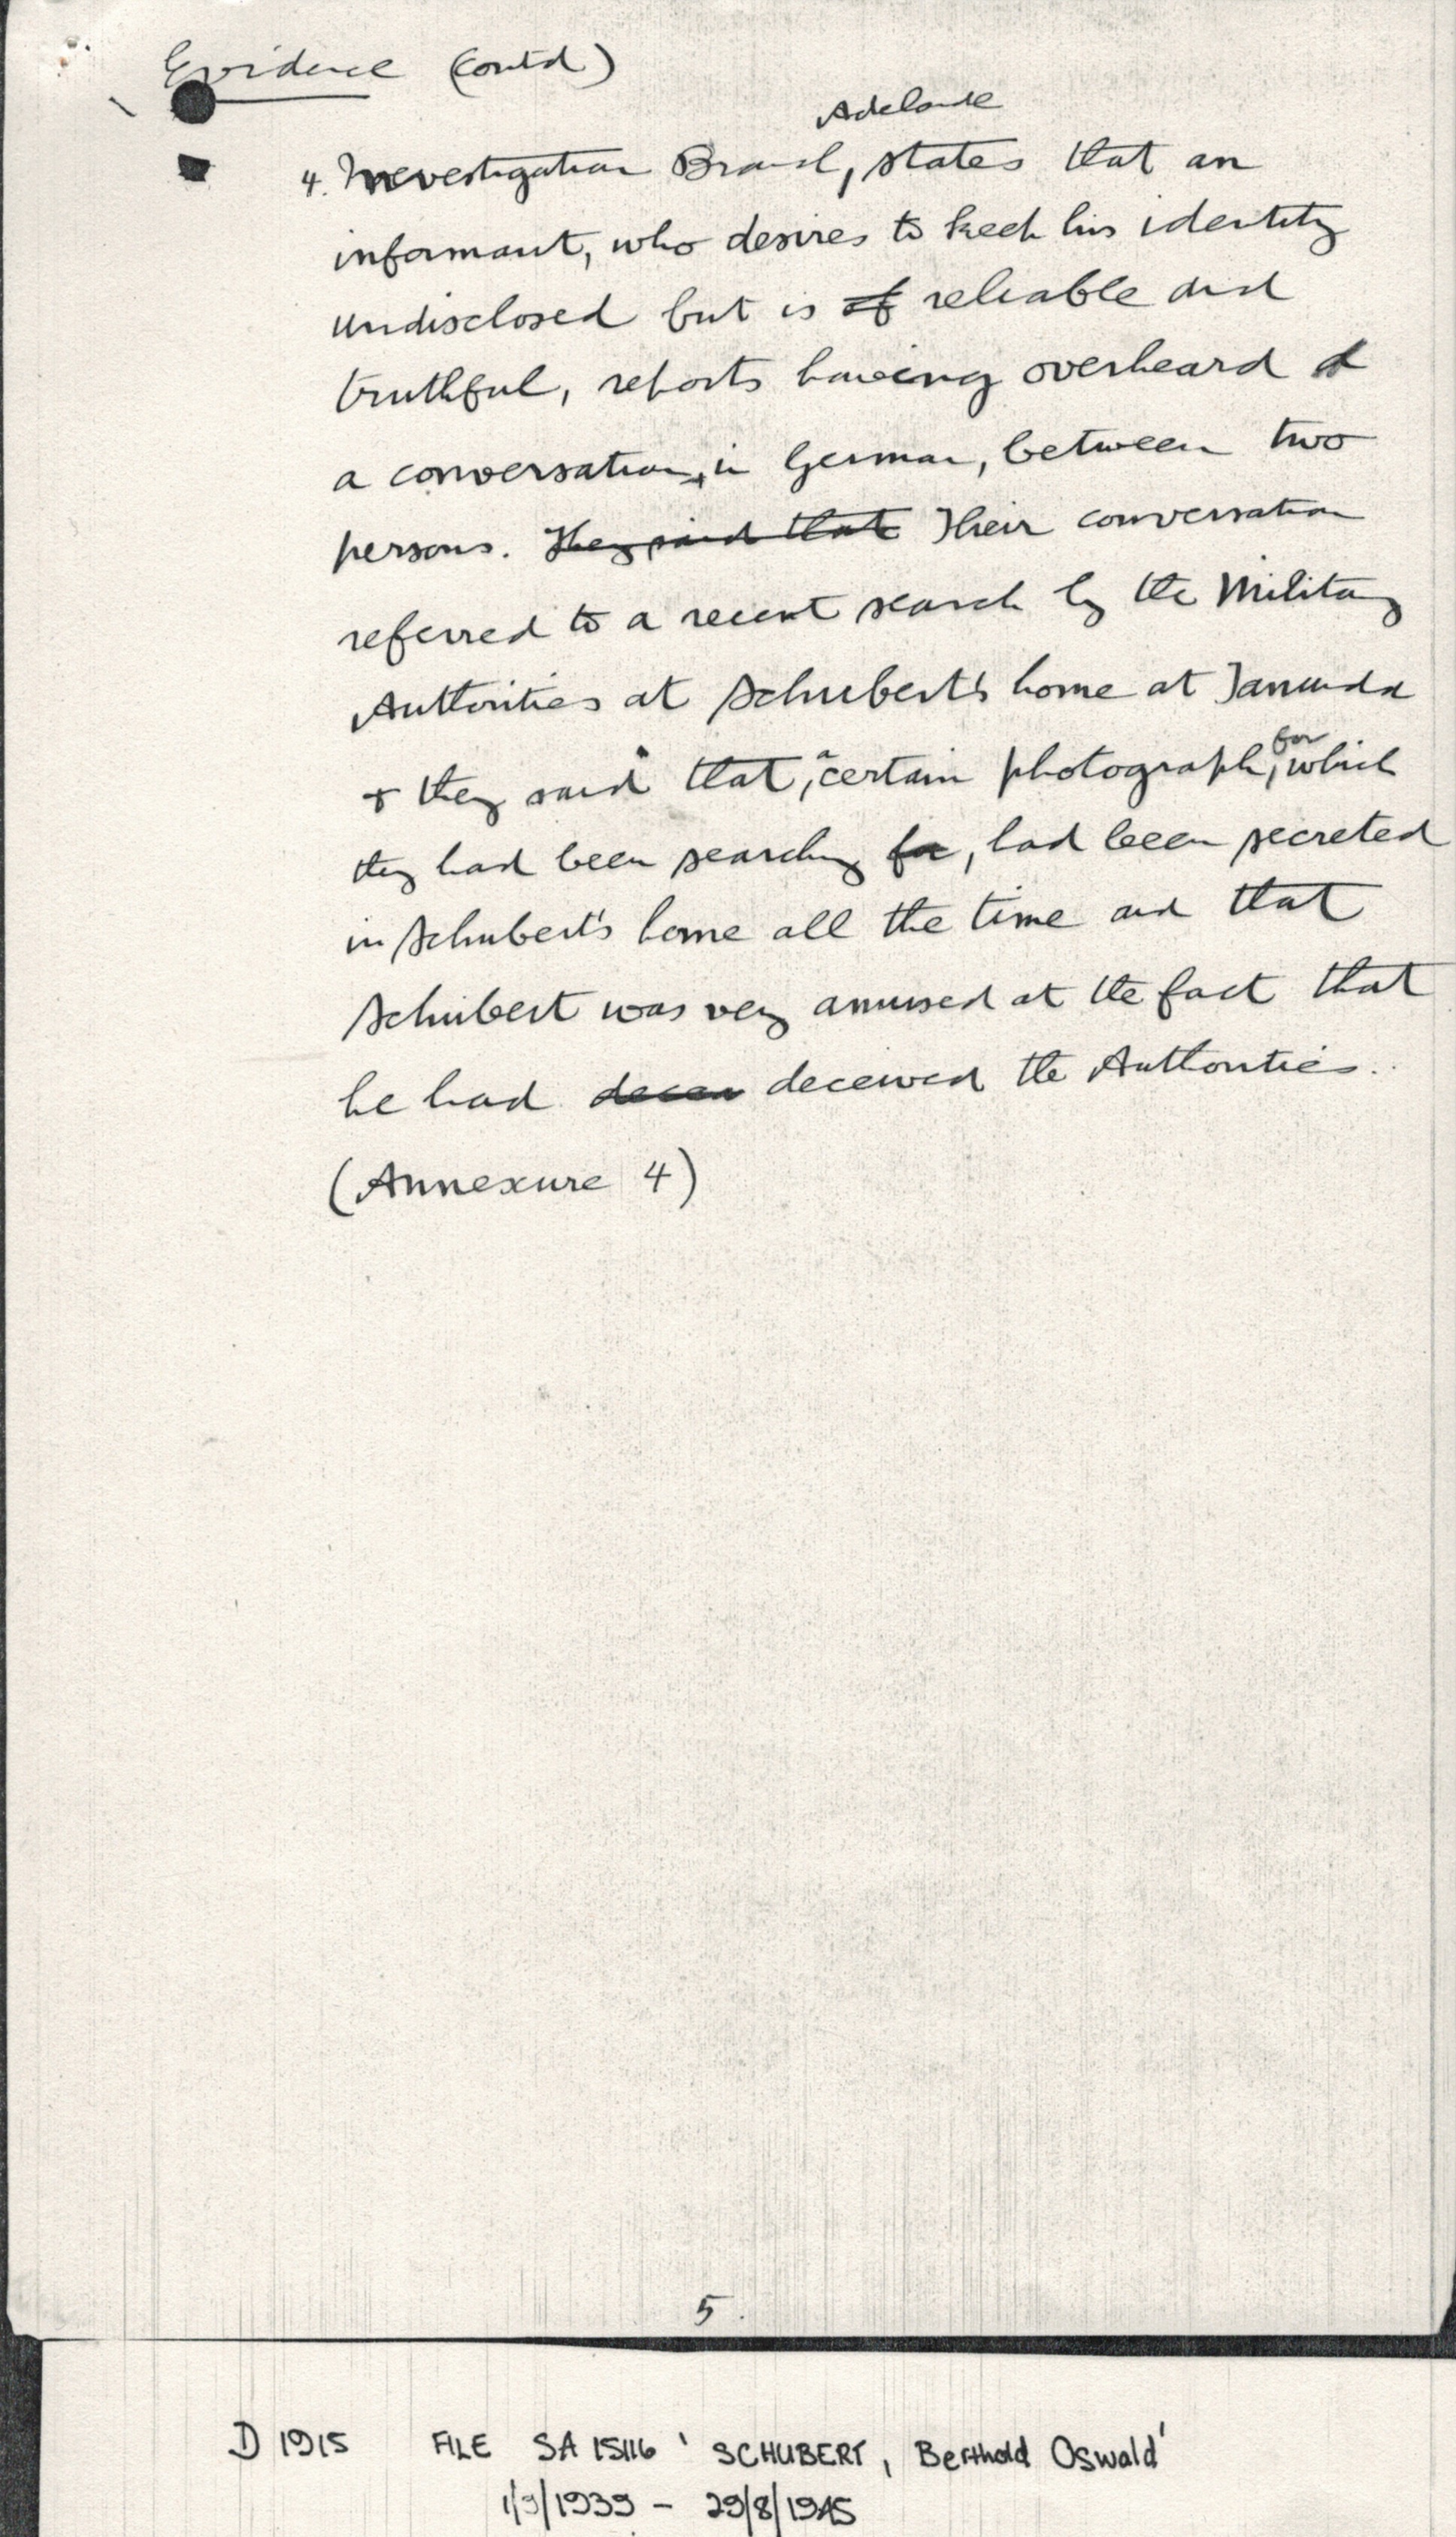 Evidence (Contd)
Adelaide
4. Investigation Branch, states that an
informant, who desires to keep his identity
undisclosed but is of reliable and
truthful, reports having overheard
a conversation, in German, between two
persons. They said that Their conversation
referred to a recent search by the Military
Authorities at Schubert's home at Tanunda
for
+ they said that, a certain photograph, which
they had been searching for, had been secreted
in Schubert's home all the time and that
Schubert was very amused at the fact that
he had decei deceived the Authorities.
(Annexure 4)
5.
D 1915 FILE SA 15116 'SCHUBERT, Berthold Oswald'
1/9/1939 - 29/8/1945